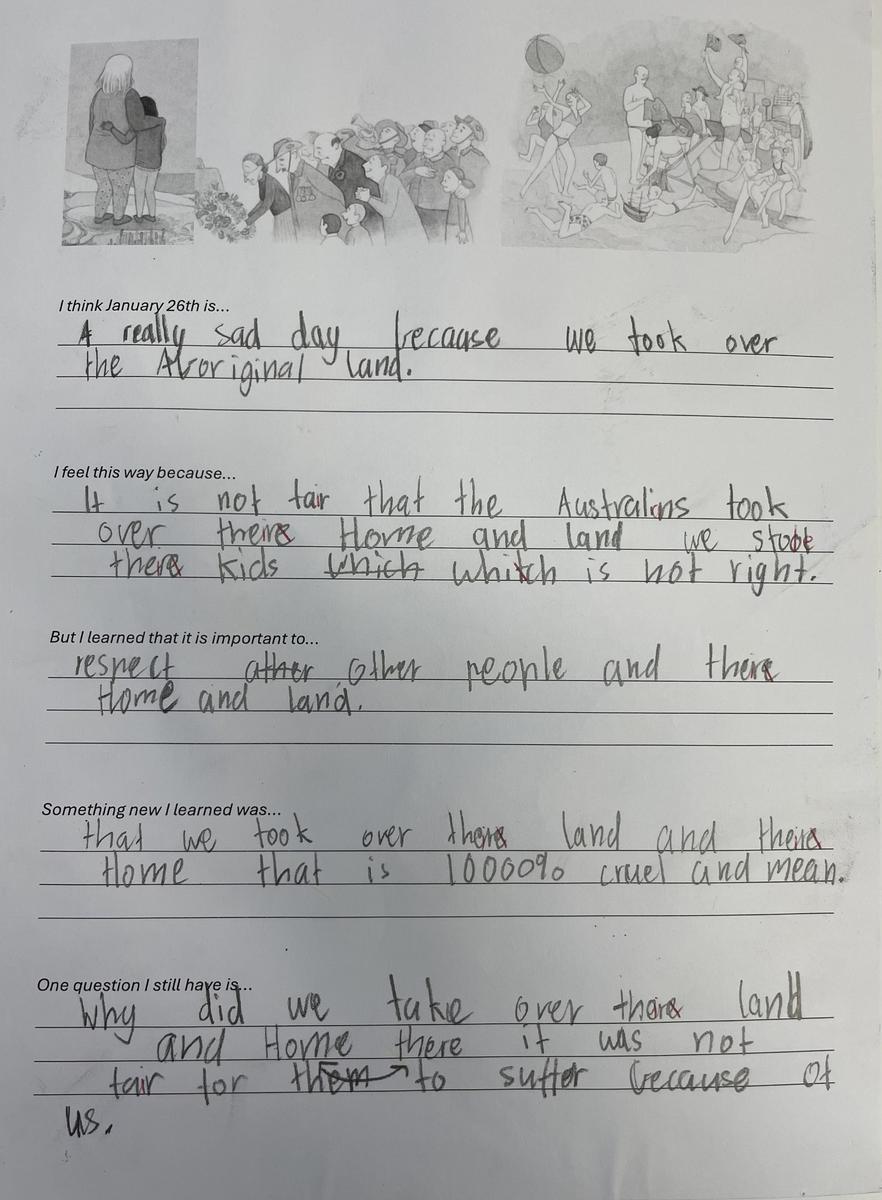 I think January 26th is...
A really sad day because we took over
the Aboriginal land.
I feel this way because...
It is not fair that the Australins took
over theire Home and land we stole
there kids which whitch is not right.
But I learned that it is important to...
respect ather other people and there
Home and land.
Something new I learned was...
that we took over there land and there
Home that is 1000% cruel and mean.
One question I still have is...
Why did we take over there land
and Home there it was not
fair for them to suffer because of
us.